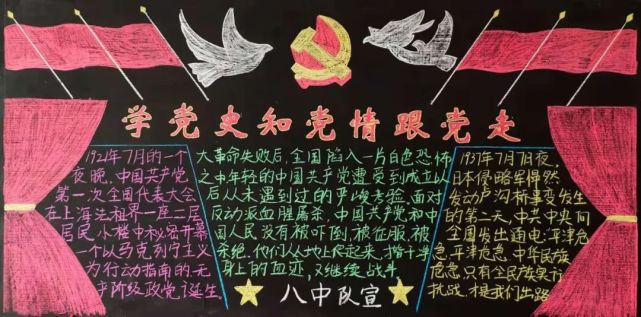 学党史知党情跟党走
1921年7月的一个
夜晚，中国共产党
第一次全国代表大会
在上海法租界一座二层
居民小楼中秘密开幕
一个以马克列宁主义
为行动指南的无
产阶级政党诞生。
大革命失败后，全国陷入一片白色恐怖
之中年轻的中国共产党遭受到成立以
后从未遇到过的严峻考验，面对
反动派血腥屠杀，中国共产党和中
国人民没有被吓倒，被征服，被
杀绝。他们从地上爬起来，揩干
身上的血迹，又继续战斗
1937年7月7日夜，
日本侵略军悍然
发动卢沟桥事变发生
的第二天，中共中央向
全国发出通电：平津危
急，平津危急，中华民族
危急，只有全民族实行
抗战，才是我们出路
八中队宣